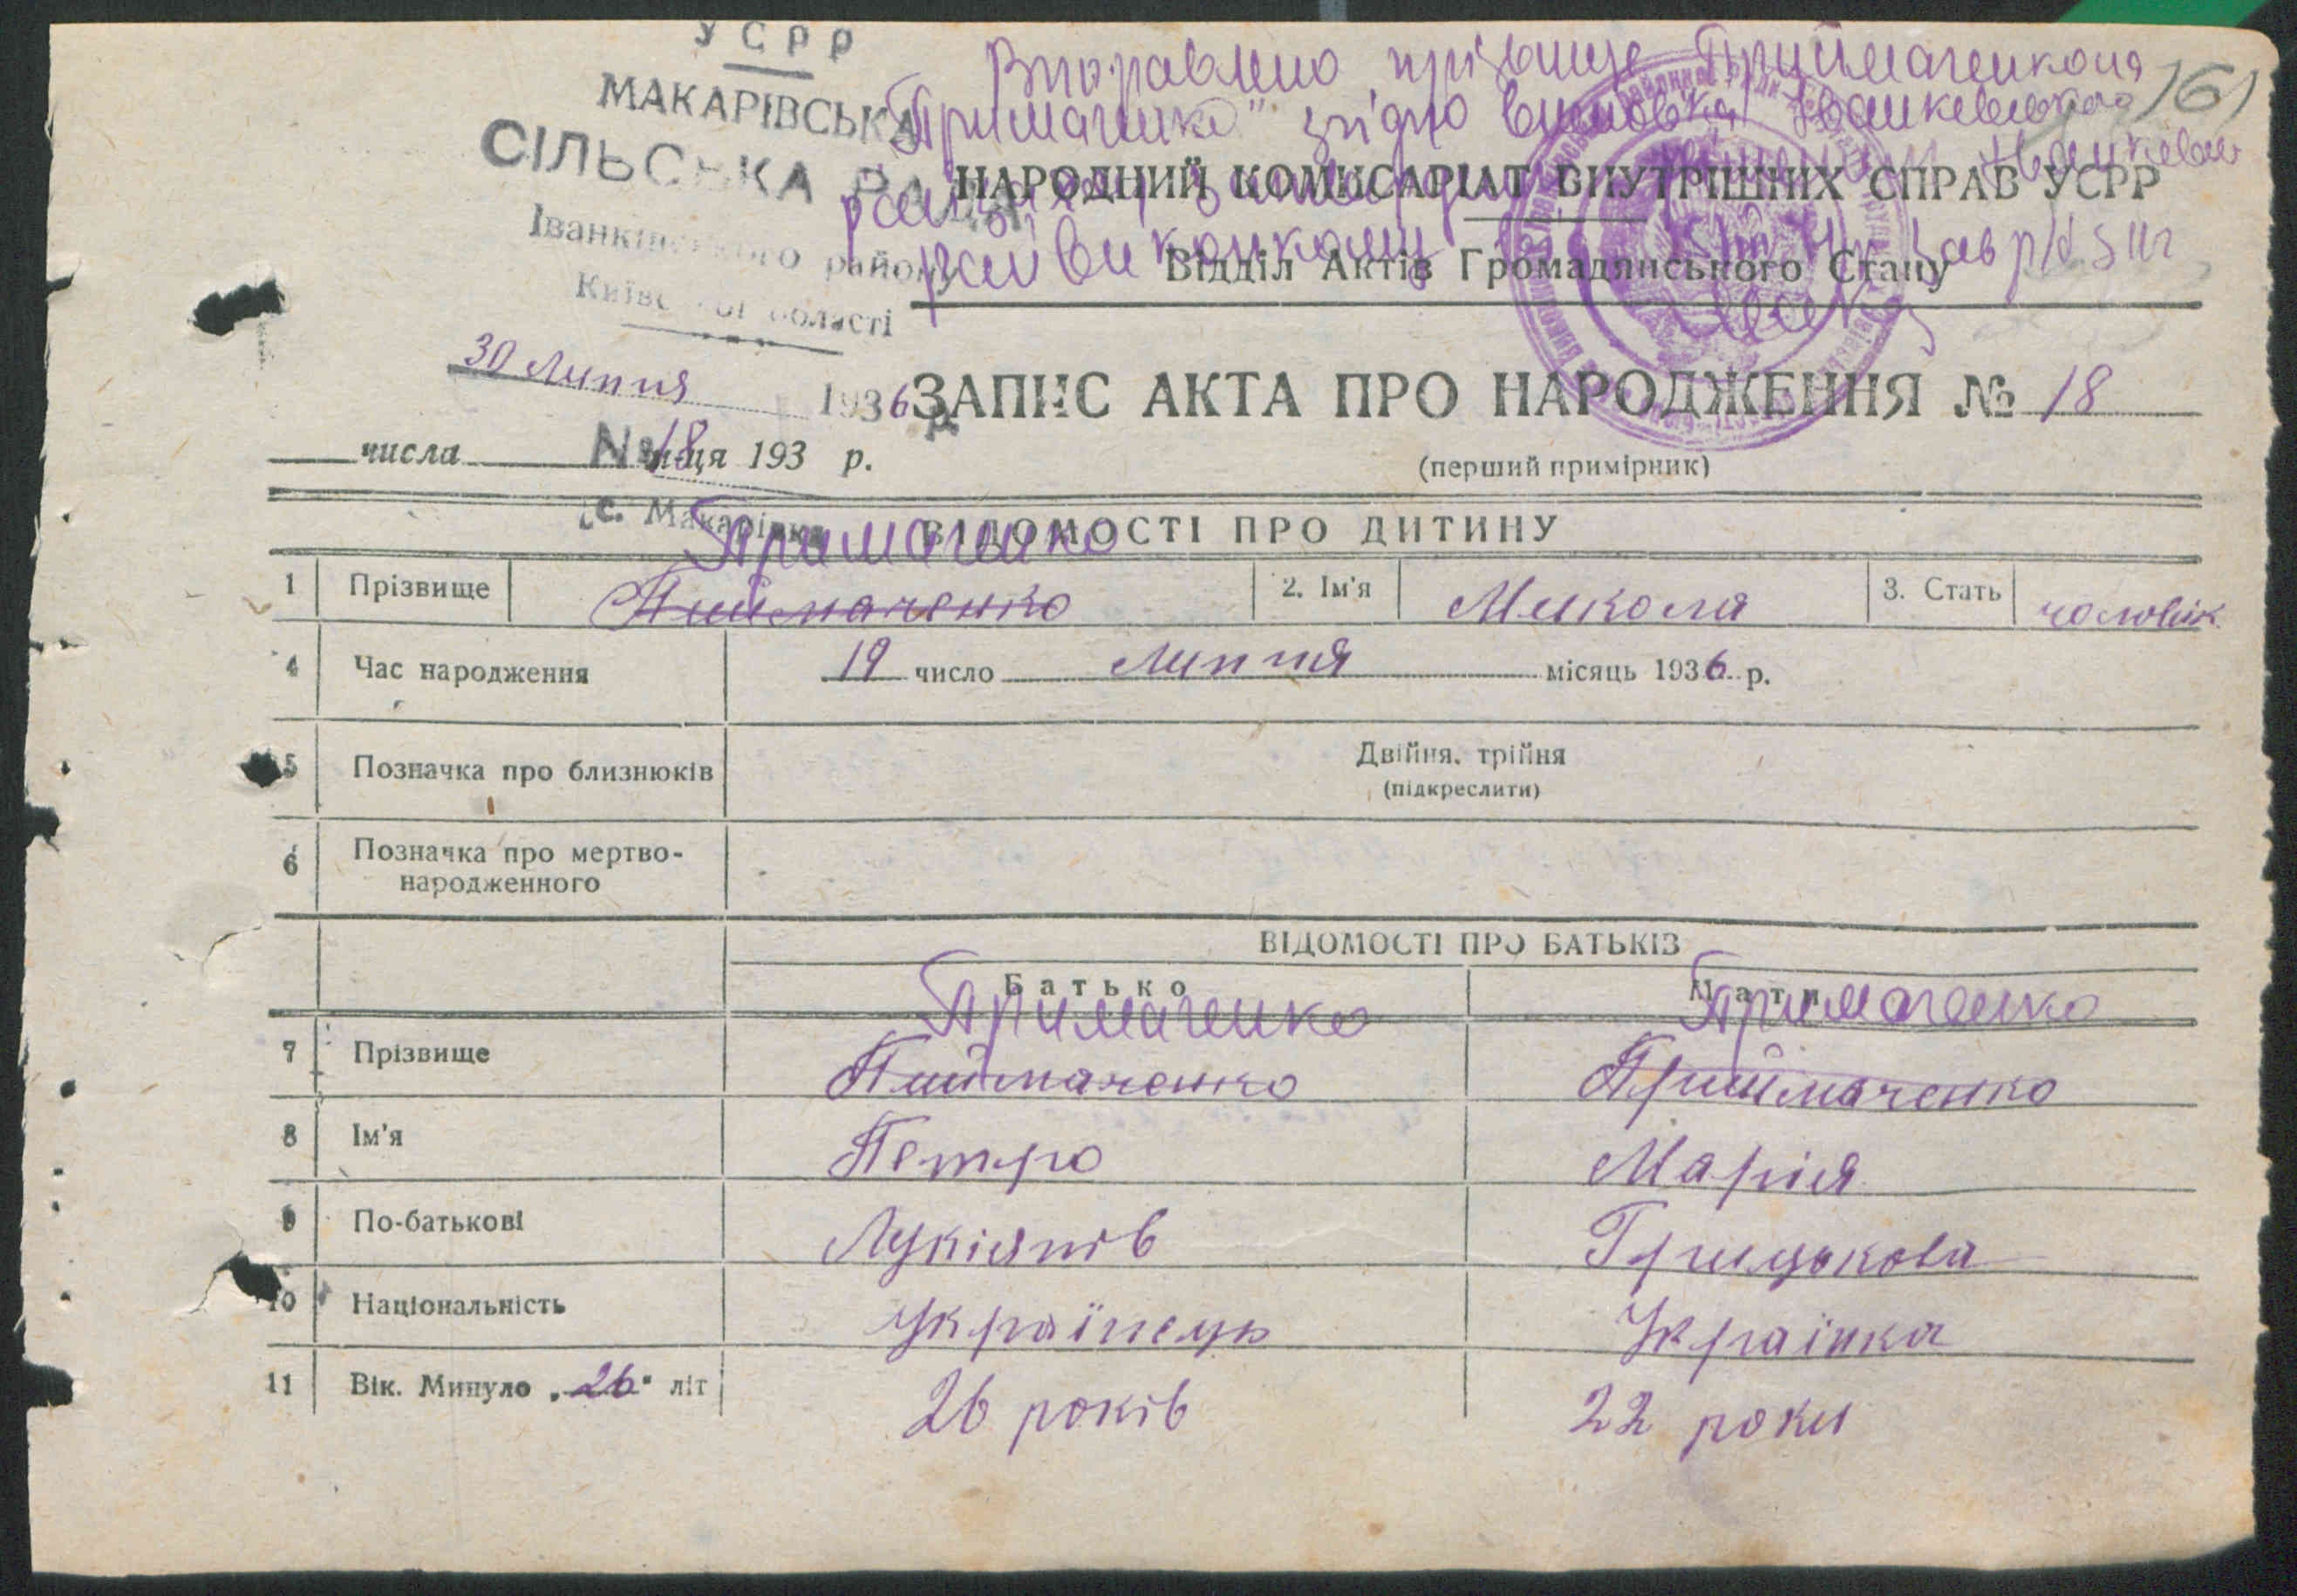 УСРР
МАКАРІВСЬКА
СІЛЬСЬКА РАДА
Іванківського району
Київської області
30 липня 1936 р.
№ 18
с. Макарівка
Виправлено прізвище Приймаченко на
"Примаченко" згідно висновка Іванківського
161
НАРОДНИЙ КОМІСАРІАТ ВНУТРІШНИХ СПРАВ УСРР
Відділ Актів Громадянського Стану
ЗАПИС АКТА ПРО НАРОДЖЕННЯ № 18
числа м-ця 193 р.
(перший примірник)
ВІДОМОСТІ ПРО ДИТИНУ
Примаченко
1 Прізвище Пииймаченко 2. Ім'я Микола 3. Стать чоловік
4 Час народження 19 число липня місяць 1936 р.
5 Позначка про близнюків Двійня, трійня
(підкреслити)
6 Позначка про мертво-
народженного
ВІДОМОСТІ ПРО БАТЬКІВ
Батько Мати
Примаченко Примаченко
7 Прізвище Пииймаченко Прииймаченко
8 Ім'я Петро Марія
9 По-батькові Лукіянів Грицькова
10 Національність Українець Українка
11 Вік. Минуло „26" літ 26 років 22 роки